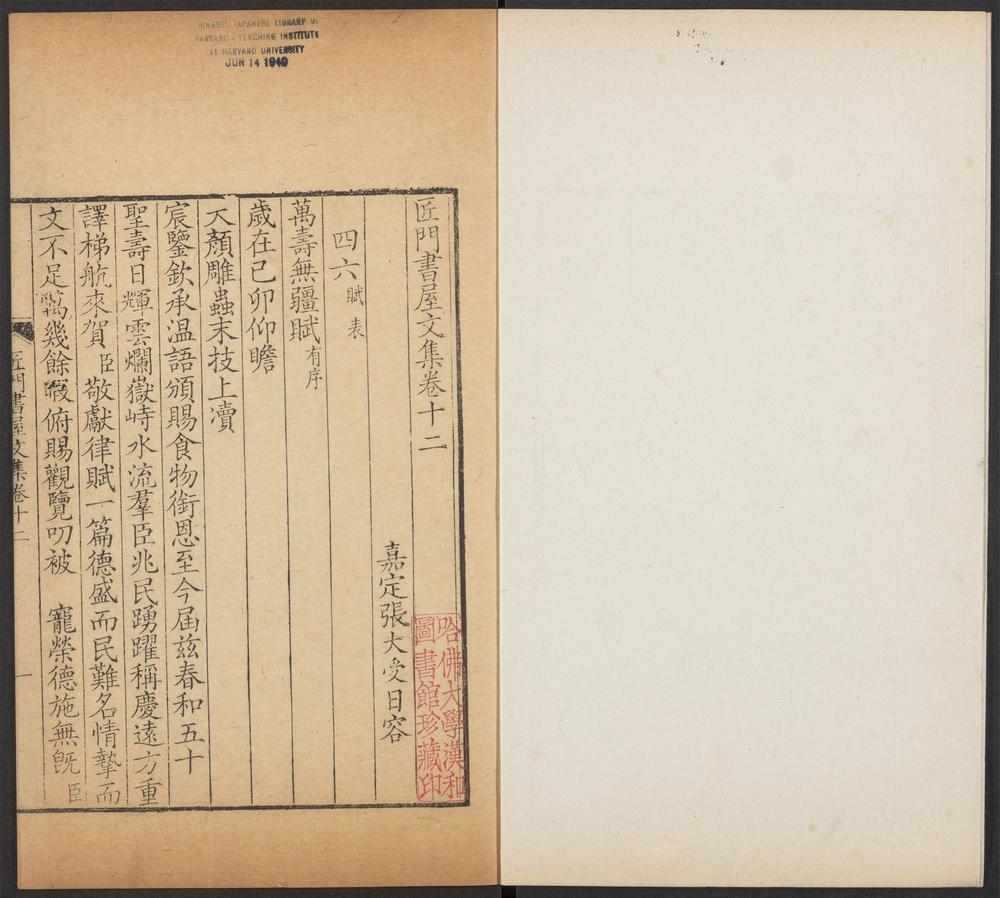 CHINESE-JAPANESE LIBRARY OF
HARVARD-YENCHING INSTITUTE
AT HARVARD UNIVERSITY
JUN 14 1940
匠門書屋文集卷十二
嘉定張大受日容
哈佛大學漢和
圖書館珍藏印
四六賦表
萬壽無疆賦有序
歲在己卯仰瞻
天顏雕蟲末技上瀆
宸鑒欽承温語頒賜食物銜恩至今屆兹春和五十
聖壽日輝雲爛嶽峙水流羣臣兆民踴躍稱慶遠方重
譯梯航來賀臣敬獻律賦一篇德盛而民難名情摯而
文不足萬幾餘暇俯賜觀覽叨被 寵榮德施無旣臣
匠門書屋文集卷十二
一